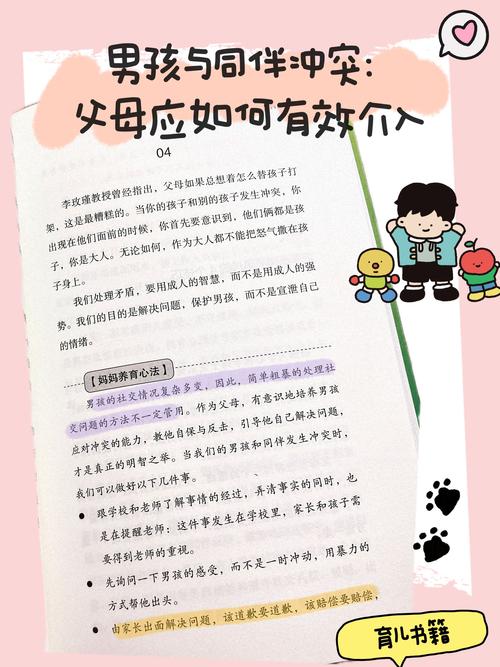 男孩与同伴冲突:
父母应如何有效介入
04
李玫瑾教授曾经指出，父母如果总想着怎么替孩子打
架，这是最糟糕的。当你的孩子和别的孩子发生冲突，你
出现在他们面前的时候，你首先要意识到，他们俩都是孩
子，你是大人。无论如何，作为大人都不能把怒气撒在孩
子身上。
我们处理矛盾，要用成人的智慧，而不是用成人的强
势。我们的目的是解决问题，保护男孩，而不是宣泄自己
的情绪。
【妈妈养育心法】
男孩的社交情况复杂多变，因此，简单粗暴的处理社
交问题的方法不一定管用。作为父母，有意识地培养男孩
应对冲突的能力，教他自保与反击，引导他自己解决问题，
才是真正的明智之举。当我们的男孩和同伴发生冲突时，
我们可以做好以下几件事。
● 跟学校和老师了解事情的经过，弄清事实的同时，也
是在提醒老师：这件事发生在学校里，家长和孩子需
要得到老师的重视。
● 先询问一下男孩的感受，而不是一时冲动，用暴力的
方式帮他出头。
● 由家长出面解决问题，该道歉要道歉，该赔偿要赔偿，
育儿书籍